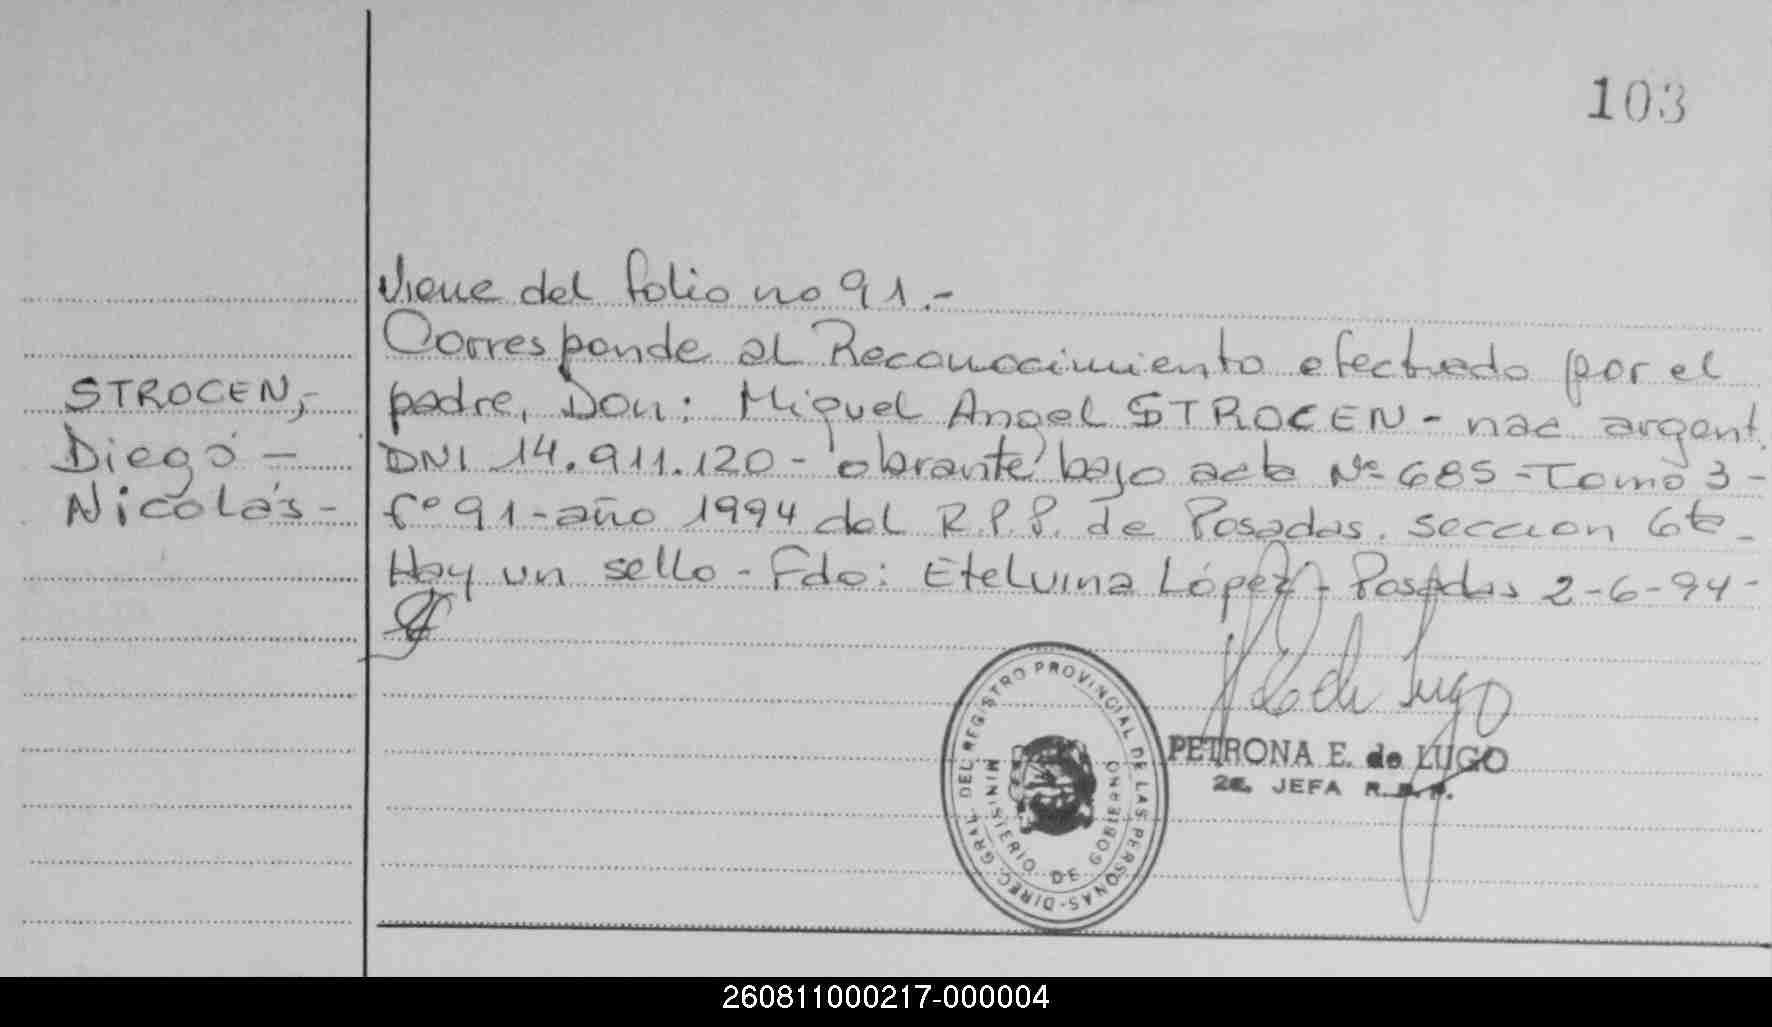 103
Viene del folio no 91.-
Corresponde al Reconocimiento efectuado por el
padre, Don: Miguel Angel STROCEN - nac argent.
DNI 14.911.120 - obrante bajo acta Nº 685 - Tomo 3 -
fº 91 - año 1994 del R.P.P. de Posadas. seccion 6ta -
Hay un sello - Fdo: Etelvina López - Posadas 2-6-94 -
STROCEN,-
Diego -
Nicolás -
DIREC. GRAL. DEL REGISTRO PROVINCIAL DE LAS PERSONAS-
MINISTERIO DE GOBIERNO
de Lugo
PETRONA E. de LUGO
2E. JEFA R.P.P.
260811000217-000004